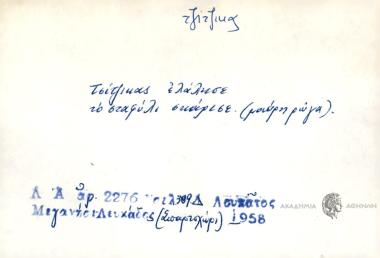 τζίτζικας
Τσίτζικας ἐλάλησε
τὸ σταφύλι σκάρισε. (μαύρη ρώγα).
Λ Α ἀρ. 2276 σελ. 309 Δ Λουκᾶτος
Μεγανήσι Λευκάδος (Σπαρτοχώρι) 1958
ΑΚΑΔΗΜΙΑ ΑΘΗΝΩΝ